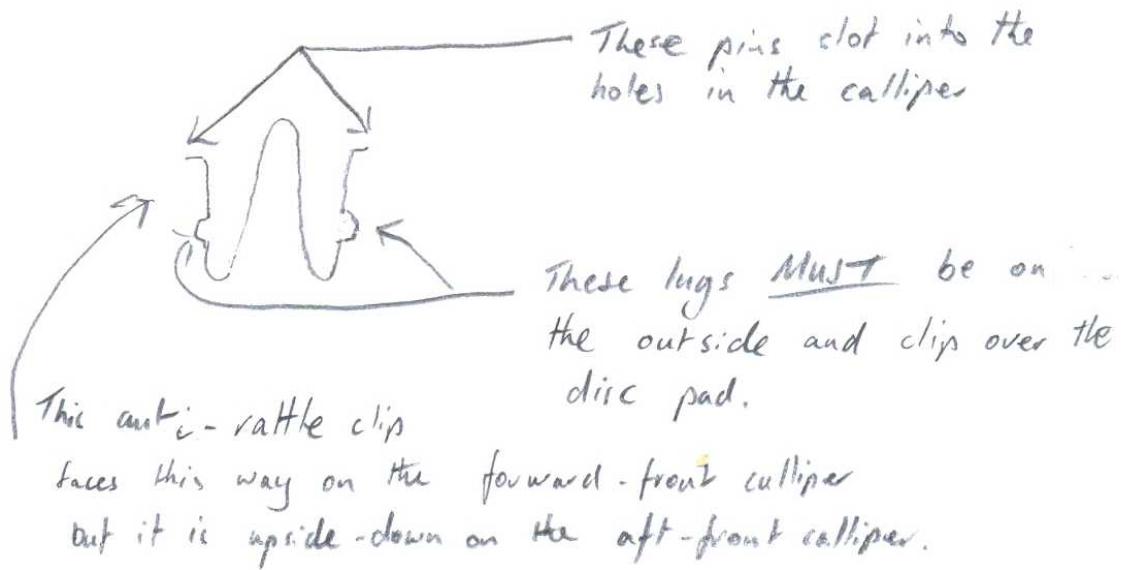 These pins slot into the
holes in the calliper
These lugs MUST be on
the outside and clip over the
disc pad.
This anti-rattle clip
faces this way on the forward-front calliper
but it is upside-down on the aft-front calliper.